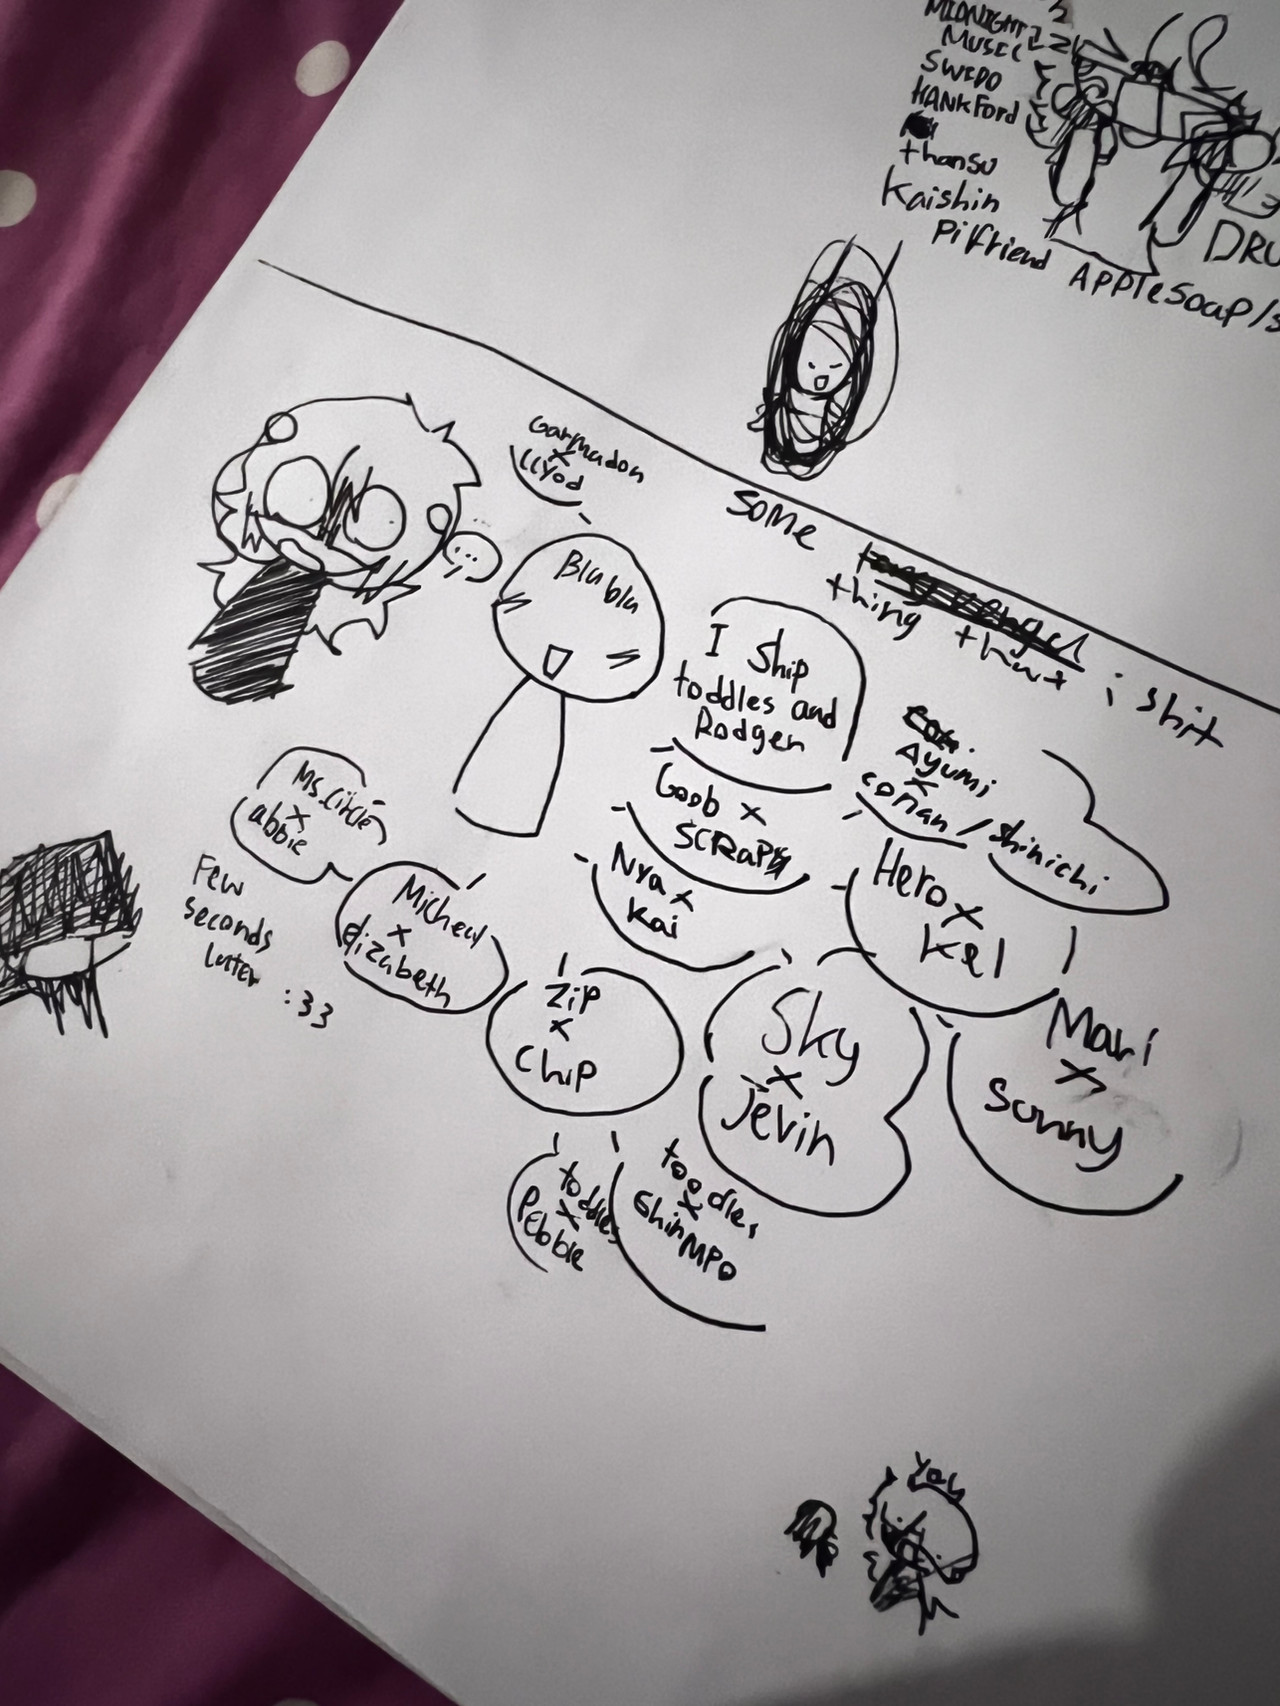 MIDNIGHT
MUSEC
SWEDO
HANKFord
thansu
Kaishin
Pifriend AppleSoap/s
DRU
some
thing thwt i shit
Garmadon
x
llyod
...
Blabla
I ship
toddles and
Rodger
Goob x
SCRAP
Nya x
Kai
Ayumi
x
conan / shinichi
Hero x
Kel
Mari
x
sonny
Sky
x
Jevin
Zip
x
Chip
Micheal
x
elizabeth
Ms.Circle
x
abbie
Few
seconds
later :33
toddles
x
Pebble
toodles
x
ShinMPO
You